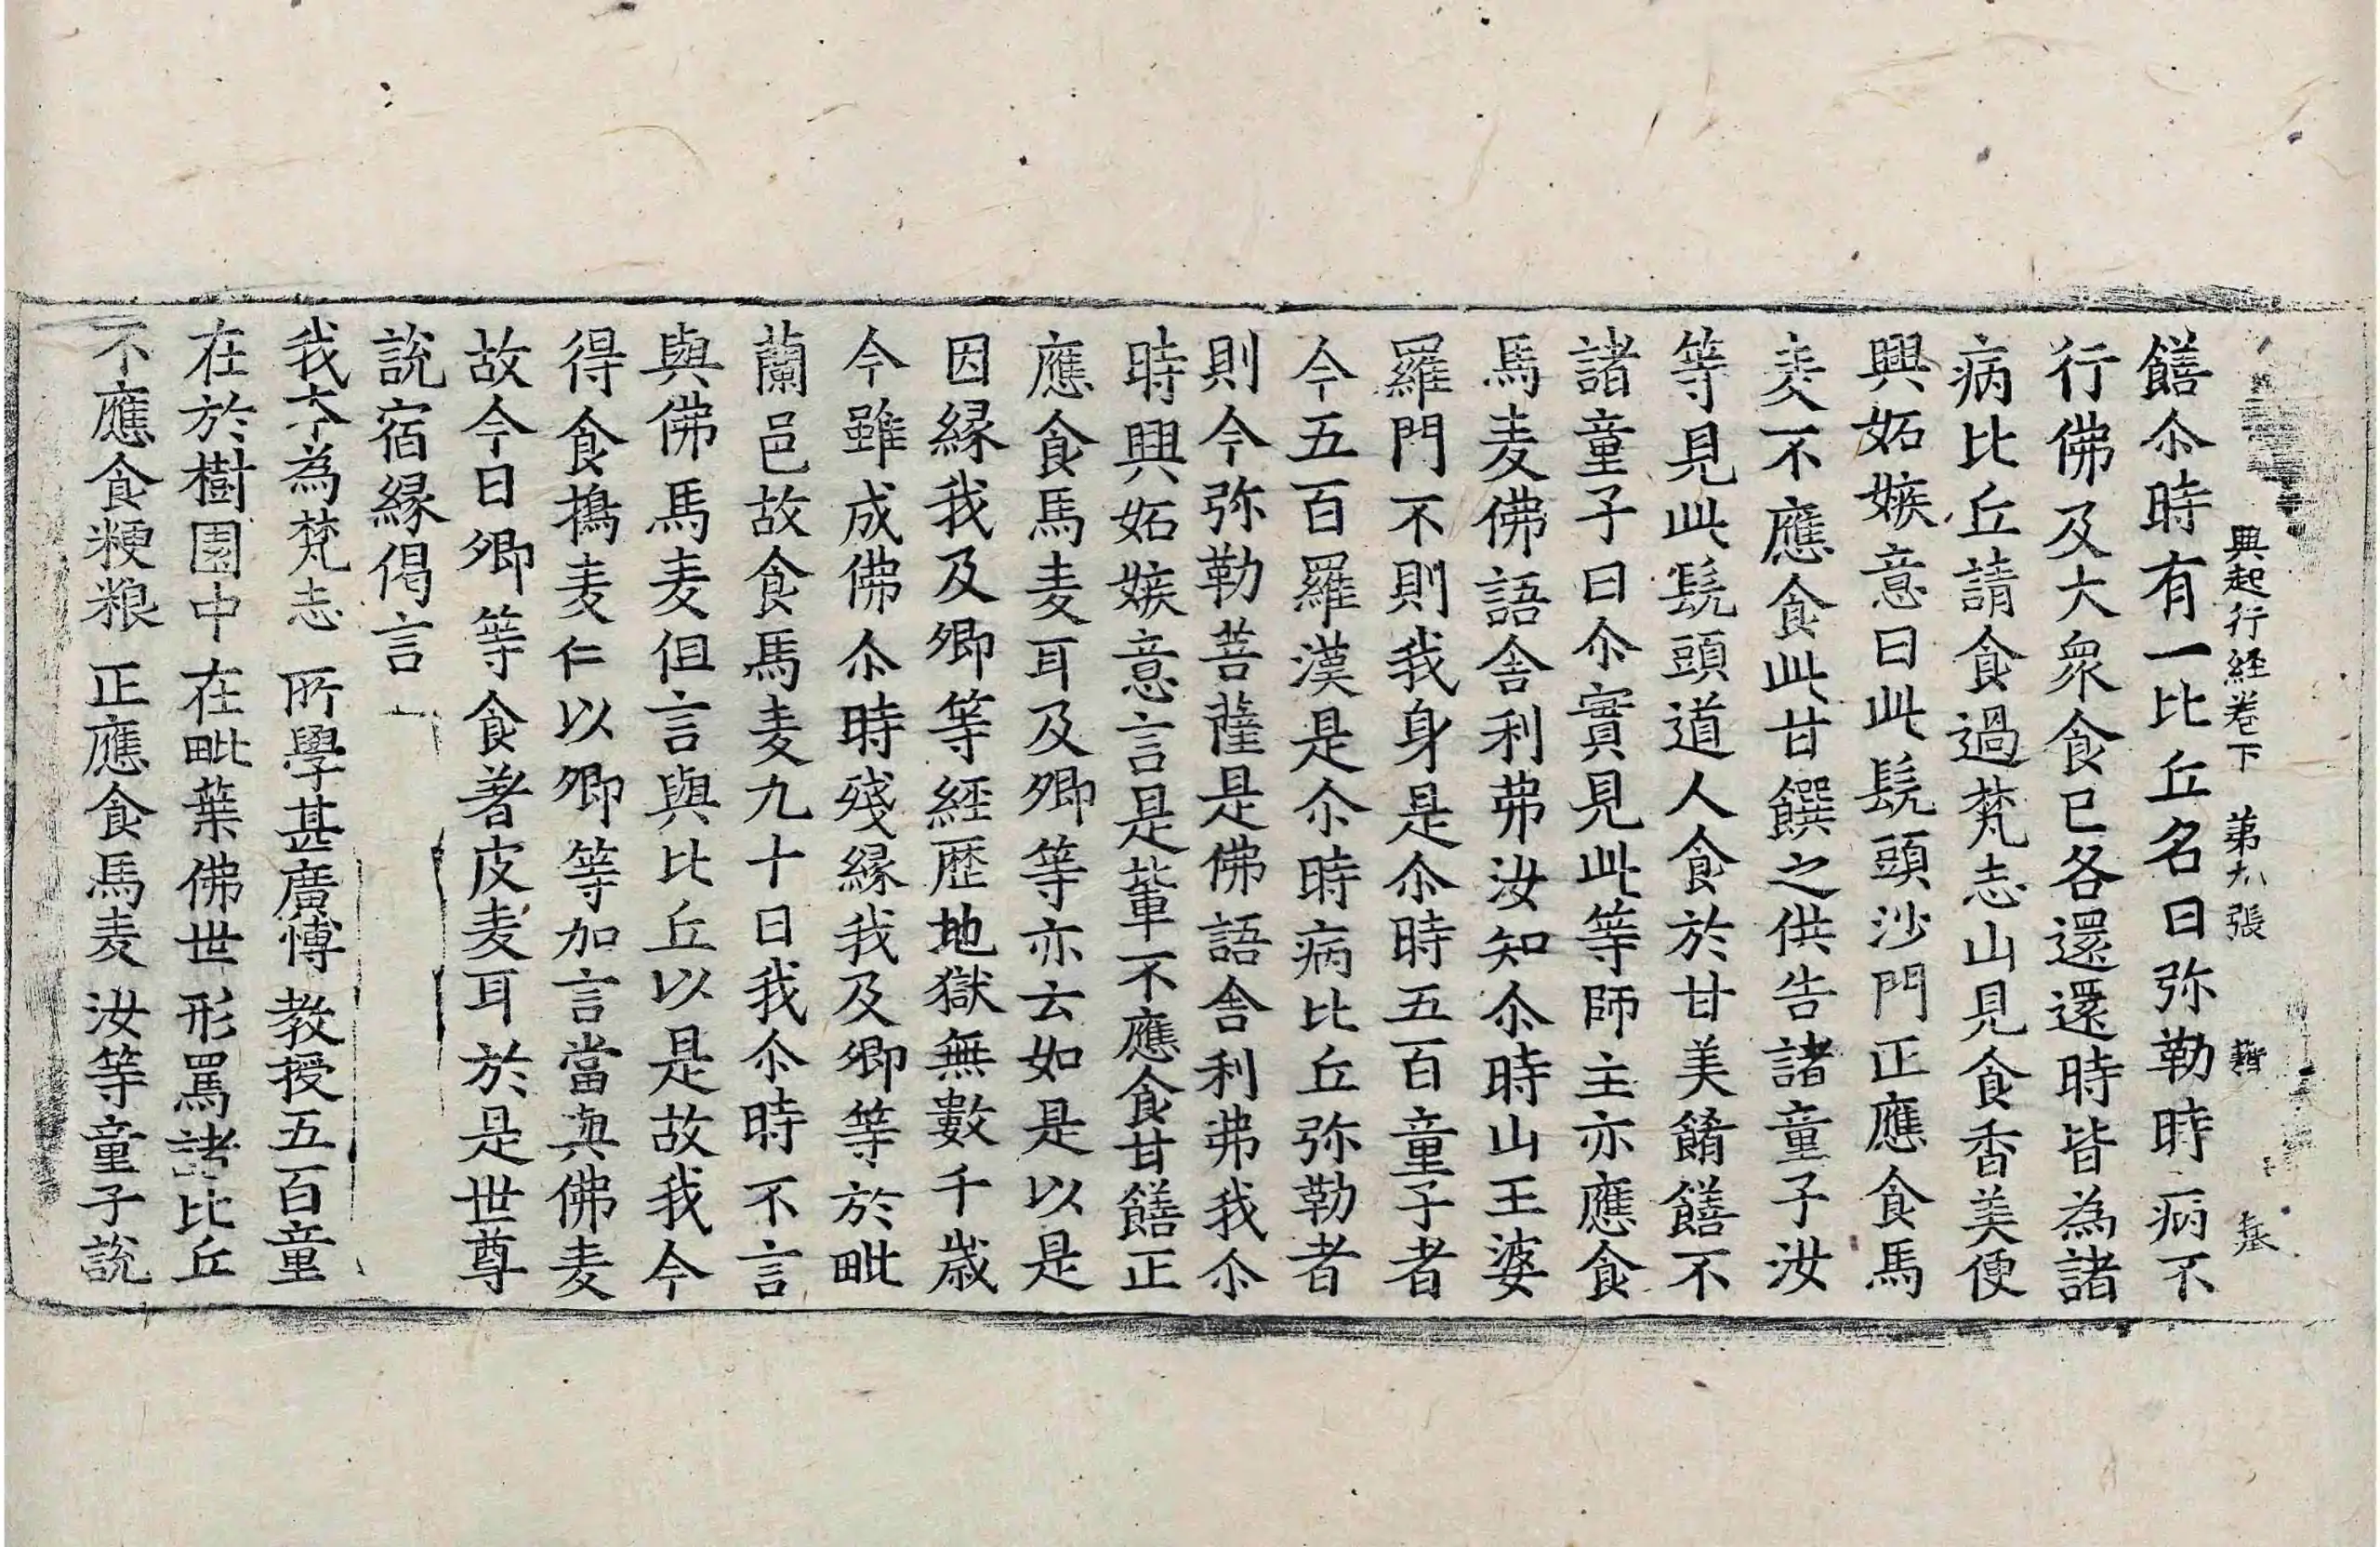 興起行経卷下 第九張 籍
饍尒時有一比丘名曰弥勒時病不
行佛及大衆食已各還還時皆為諸
病比丘請食過梵志山見食香美便
興妬嫉意曰此髡頭沙門正應食馬
麦不應食此甘饌之供告諸童子汝
等見此髡頭道人食於甘美餚饍不
諸童子曰尒實見此等師主亦應食
馬麦佛語舍利弗汝知尒時山王婆
羅門不則我身是尒時五百童子者
今五百羅漢是尒時病比丘弥勒者
則今弥勒菩薩是佛語舍利弗我尒
時興妬嫉意言是軰不應食甘饍正
應食馬麦耳及卿等亦云如是以是
因縁我及卿等経歴地獄無數千歳
今雖成佛尒時殘縁我及卿等於毗
蘭邑故食馬麦九十日我尒時不言
與佛馬麦但言與比丘以是故我今
得食擣麦仁以卿等加言當與佛麦
故今日卿等食著皮麦耳於是世尊
說宿縁偈言
我本為梵志 所學甚廣博 教授五百童
在於樹園中 在毗葉佛世 形罵諸比丘
不應食粳粮 正應食馬麦 汝等童子說